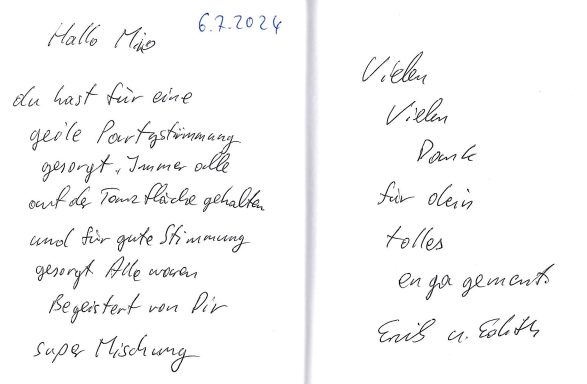 6.7.2024
Hallo Miko
du hast für eine
geile Partystimmung
gesorgt. Immer alle
auf der Tanzfläche gehalten
und für gute Stimmung
gesorgt Alle waren
Begeistert von Dir
super Mischung
Vielen
Vielen
Dank
für dein
tolles
engagement.
u. Edith